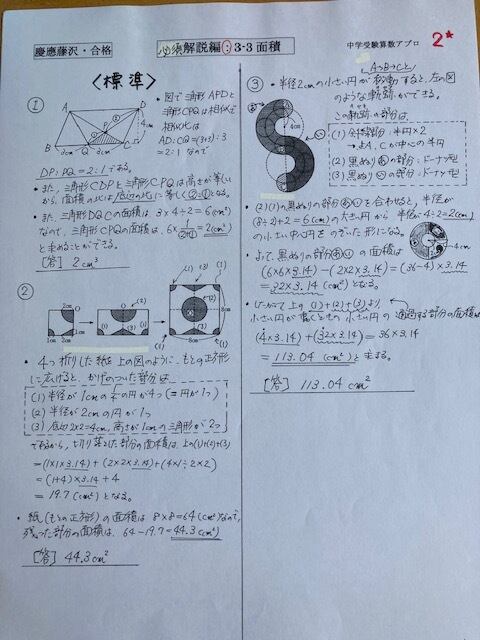 慶應藤沢・合格
必須解説編:3-3面積
中学受験算数アプロ
2*
〈標準〉
①
・図で三角形APDと
三角形CPQは相似で
相似比は
AD:CQ=(3+3):3
=2:1なので
DP:PQ=2:1である。
・また、三角形CDPと三角形CPQは高さが等しい
から、面積の比は底辺の比に等しく②:①となる。
・また、三角形DQCの面積は 3×4÷2=6(cm²)
なので、三角形CPQの面積は、6×1/(2+1)=2(cm²)
と求めることができる。
[答] 2cm²
②
・4つ折りした紙を上の図のように、もとの正方形
に広げると、かげのついた部分は
(1) 半径が1cmの1/4の円が4つ(=円が1つ)
(2) 半径が2cmの円が1つ
(3) 底辺2×2=4cm,高さが1cmの三角形が2つ
であるから、切り落とした部分の面積は、上の(1)+(2)+(3)
=(1×1×3.14)+(2×2×3.14)+(4×1÷2×2)
=(1+4)×3.14+4
=19.7(cm²)となる。
・紙(もとの正方形)の面積は 8×8=64(cm²)なので、
残った部分の面積は、64-19.7=44.3(cm²)
[答] 44.3cm²
③
A→B→Cと
・半径2cmの小さい円が移動すると、左の図
のような軌跡ができる。
この軌跡の部分は、
(1) 半円×2
→A,Cが中心の半円
(2) 黒ぬりあの部分:ドーナツ型
(3) 黒ぬりいの部分:ドーナツ型
・(2)(3)の黒ぬりの部分あいを合わせると、半径が
(8+2)÷2=6(cm)の大きい円から 半径が4÷2=2(cm)
の小さい中心円をのぞいた形になる。
・よって、黒ぬりの部分あいの面積は
(6×6×3.14)-(2×2×3.14)=(36-4)×3.14
=32×3.14(cm²)となる。
・したがって上の(1)+(2)+(3)より、
小さい円が動くときの小さい円の通過する部分の面積は
(4×3.14)+(32×3.14)=36×3.14
=113.04(cm²)と求まる。
[答] 113.04cm²